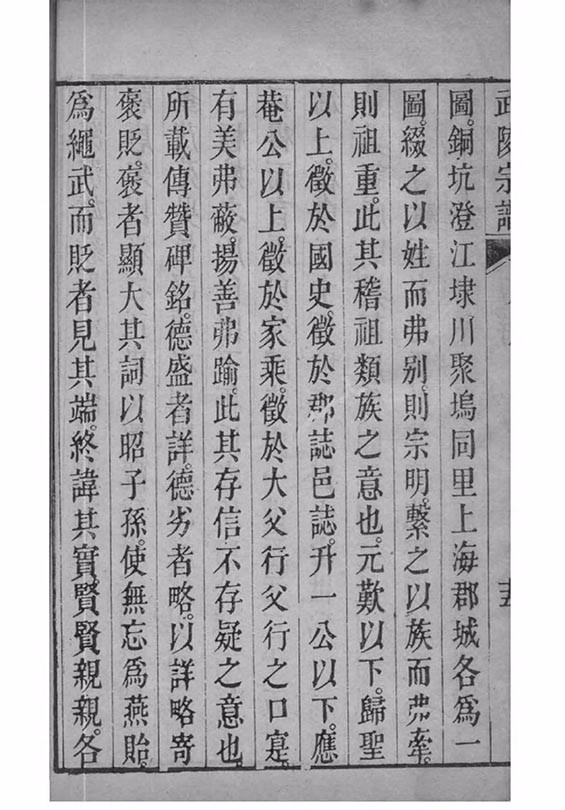 武陵宗譜
圖。銅坑澄江埭川聚塢同里上海郡城各爲一
圖。綴之以姓而弗别。則宗明。繫之以族而弗牽。
則祖重。此其稽祖類族之意也。元歎以下。歸聖
以上。徵於國史。徵於郡誌邑誌。升一公以下。應
菴公以上。徵於家乘。徵於大父行父行之口寔。
有美弗蔽。揚善弗踰。此其存信不存疑之意也。
所載傳贊碑銘。德盛者詳。德劣者略。以詳略寄
褒貶。褒者顯大其詞以昭子孫。使無忘爲燕貽。
爲繩武。而貶者見其端。終諱其實。賢賢親親。各